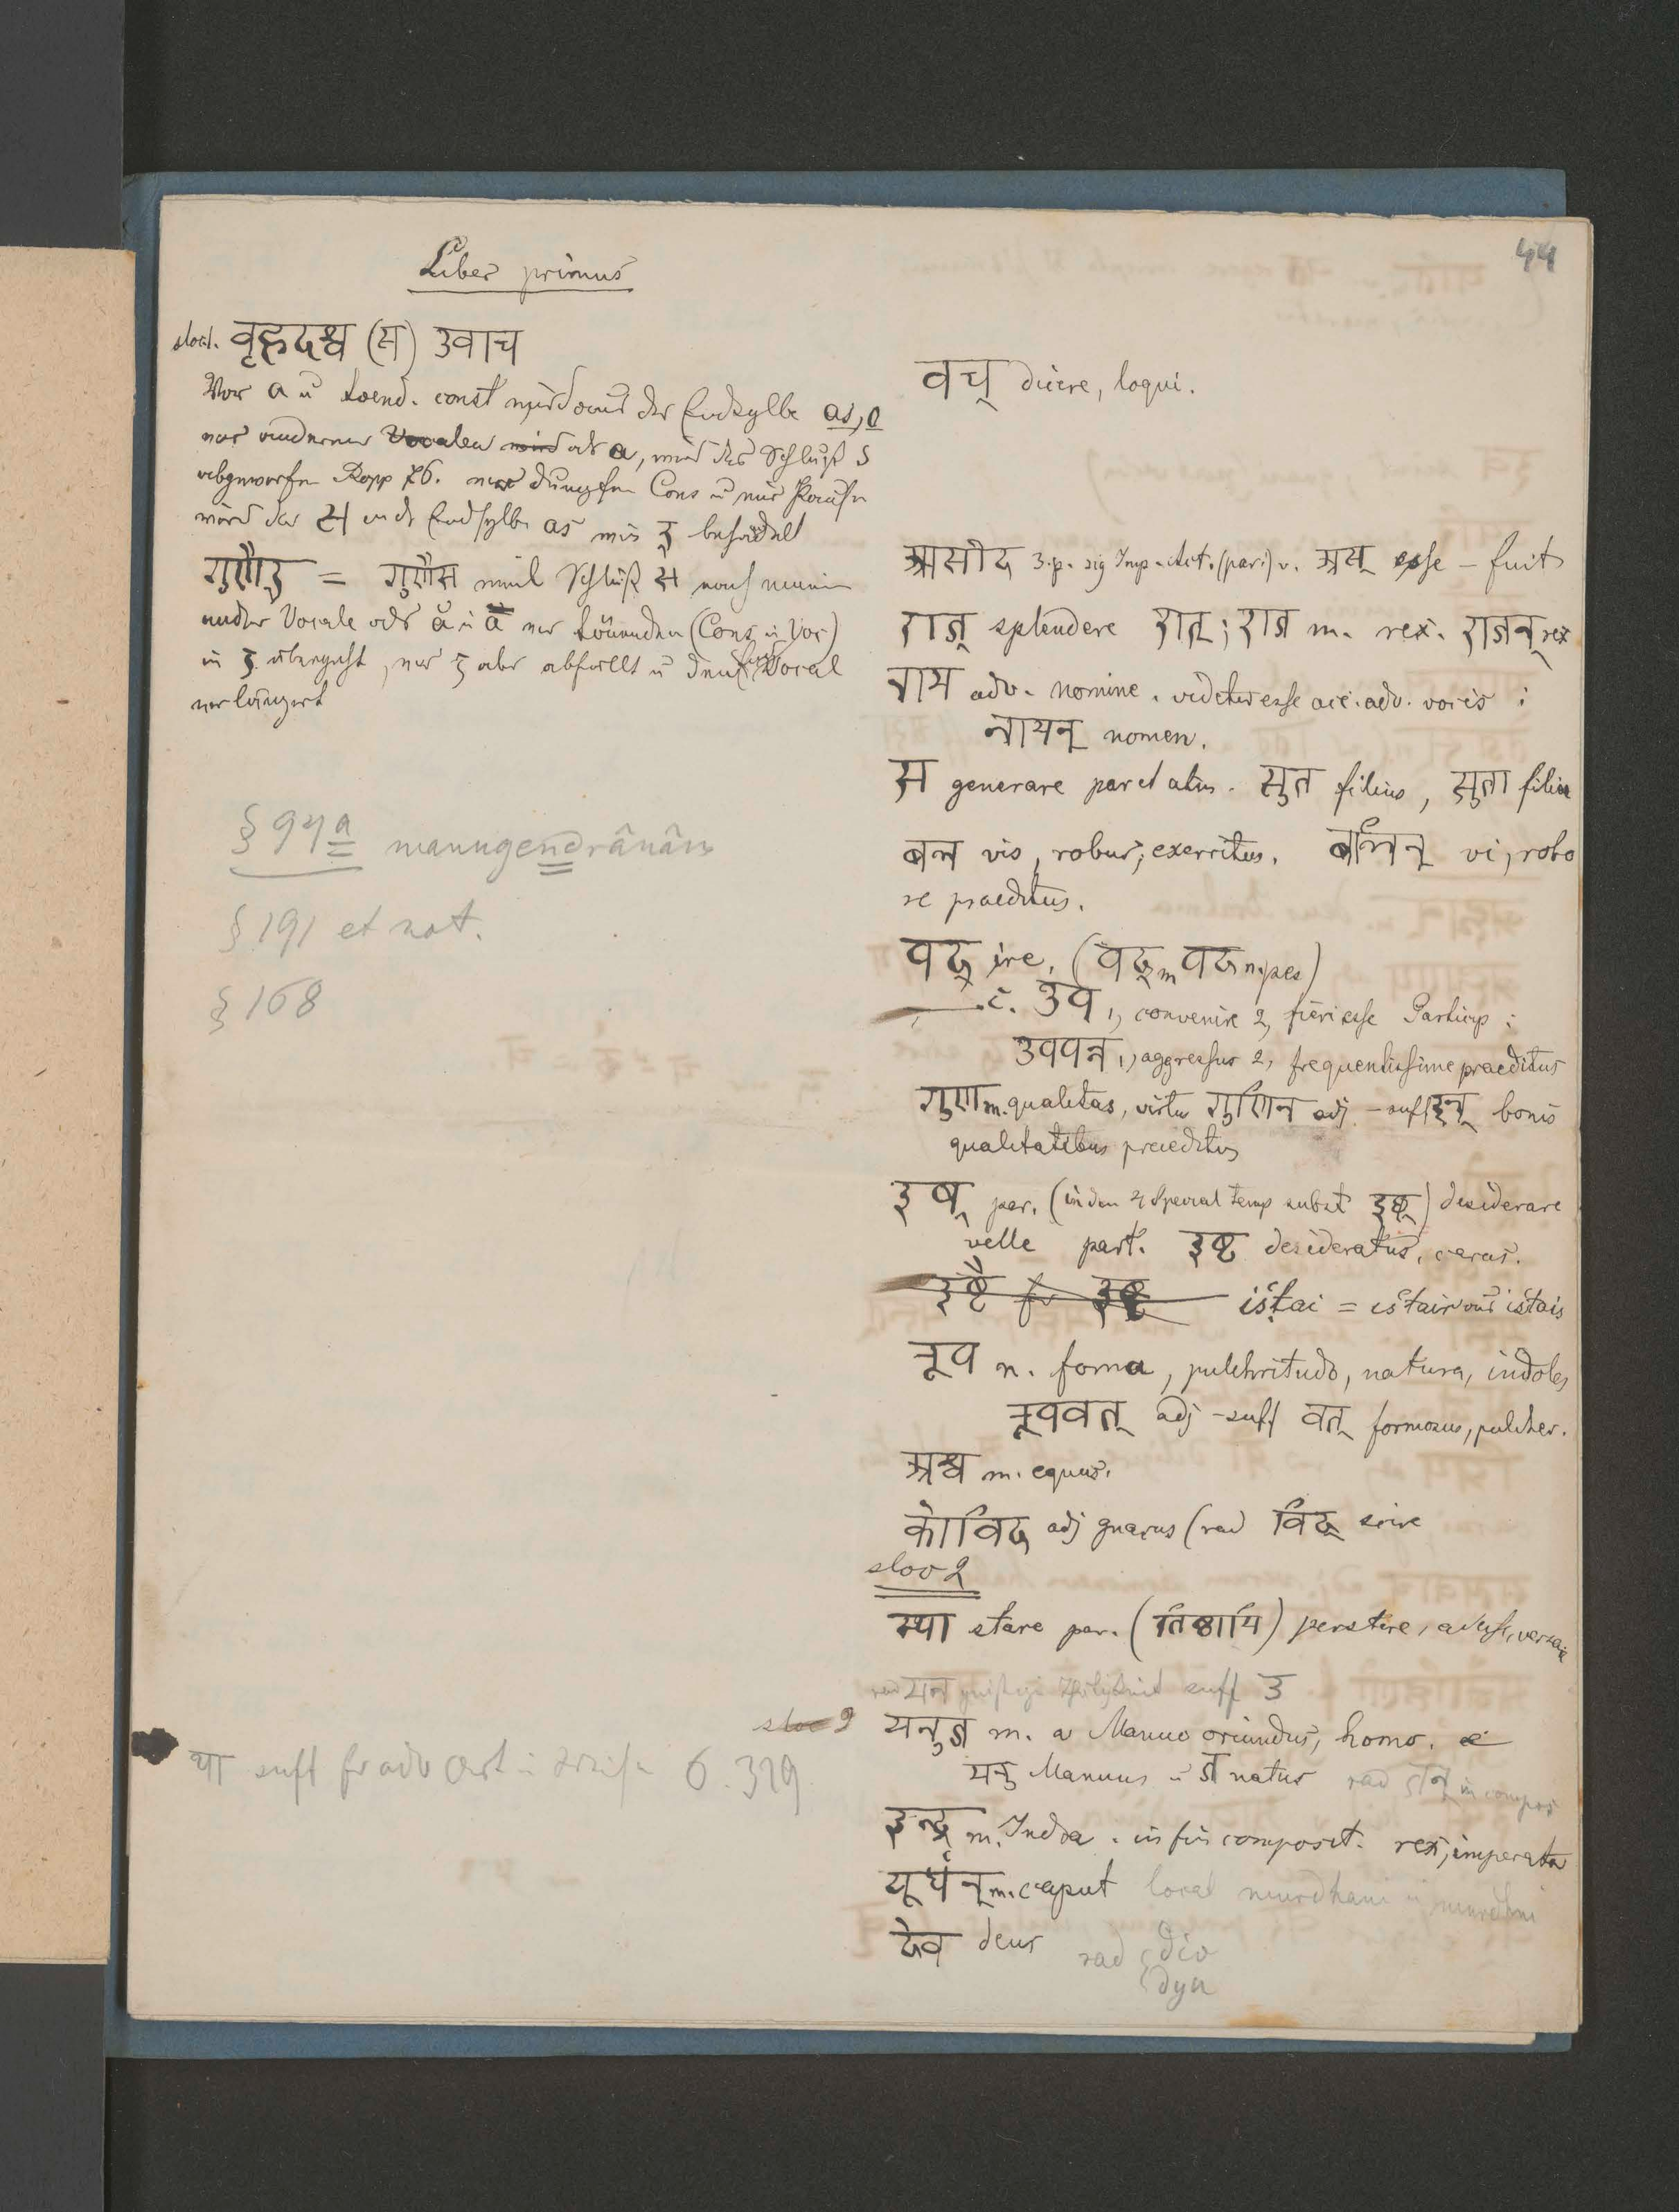 44
Liber primus
slocl. वृहदश्व (स) उवाच
Vor a u toend. const wird aus der Endsylbe as, o
vor anderen Vocalen wird als a, wird das Schluß s
abgeworfen Bopp 76. vor dumpfen Cons u vor Pausen
wird das स als Endsylbe as wie र् behandelt
गुणैर् = गुणैस weil Schluß स nach einem
andern Vocale als ă u ā vor tönenden (Cons u Voc)
in र् übergeht, vor र् aber abfällt u den kurzen Vocal
verlängert
§ 94 a manugendrânâm
§ 191 et not.
§ 168
था suff fr adv Art u Weise 6. 319
वच् dicere, loqui.
आसीद 3. p. sig Imp. Act. (par.) v. अस् esse – fuit
राज् splendere राज्; राज m. rex. राजन् rex
नाम adv. nomine. videtur esse acc. adv. vocis :
नामन् nomen.
सु generare par et atm. सुत filius, सुता filia
बल vis, robur; exercitus. बलिन् vi, robo
re praeditus.
पद् ire. (पद् m पद n. pes)
– c. उप 1, convenire 2, fieri esse Particip :
उपपन्न 1, aggressus 2, frequentissime praeditus
गुण m. qualitas, virtus गुणिन adj – suff इन् bonis
qualitatibus praeditus
इष् par. (in den 4 Special temp subst इछ्) desiderare
velle part. इष्ट desideratus, carus.
इष्टै für इष्ट istai = istair aus istais
रूप n. forma, pulchritudo, natura, indoles
रूपवत् adj – suff वत् formosus, pulcher.
अश्व m. equus.
कोविद adj gnarus (rad विद् scire
sloc 2
स्था stare par. (तिष्ठामि) perstare, adesse, versari
rad मन suff उ
sloc 2 मनुज m. a Manuo oriundus, homo.
मनु Manuus u ज natus rad जन् in compos
इन्द्र m. Indra. in fin composit. rex, imperator
मूर्धन् m. caput local murdhani u murdhni
देव deus rad div
dyu